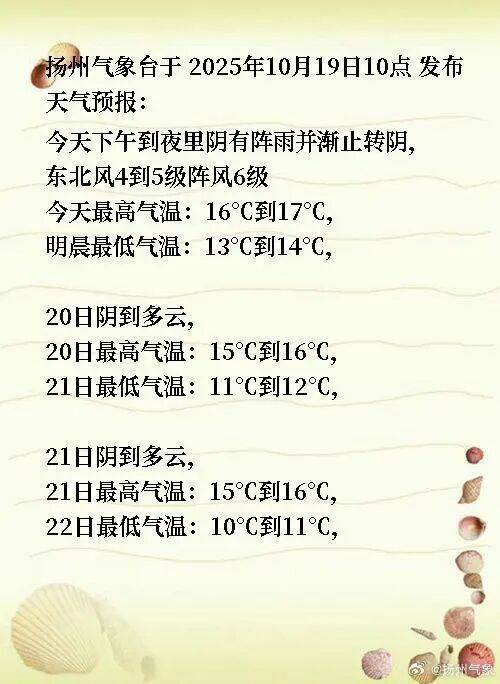 扬州气象台于 2025年10月19日10点 发布
天气预报：
今天下午到夜里阴有阵雨并渐止转阴，
东北风4到5级阵风6级
今天最高气温：16℃到17℃，
明晨最低气温：13℃到14℃，
20日阴到多云，
20日最高气温：15℃到16℃，
21日最低气温：11℃到12℃，
21日阴到多云，
21日最高气温：15℃到16℃，
22日最低气温：10℃到11℃，
@扬州气象